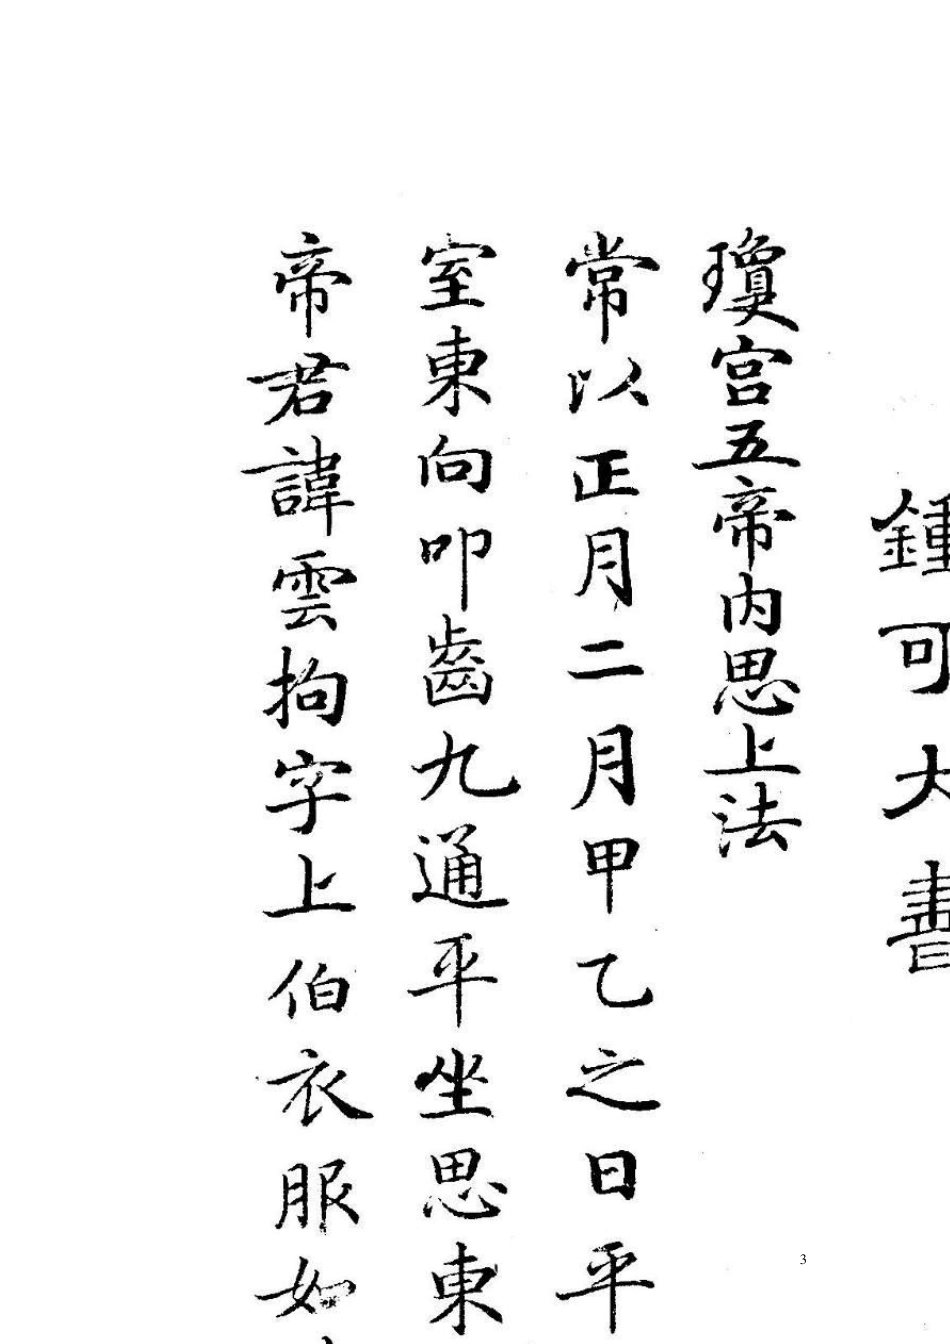 鍾可大書
瓊宮五帝內思上法
常以正月二月甲乙之日平
室東向叩齒九通平坐思東
帝君諱雲拘字上伯衣服如
3